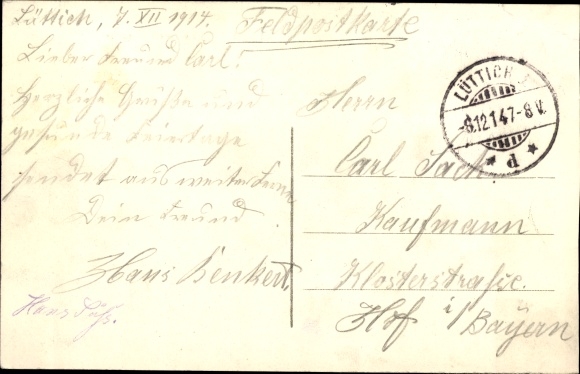 Lüttich, 7. XII 1914.
Feldpostkarte
Lieber Freund Carl!
Herzliche Grüße und
gesunde Feiertage
sendet aus weiter Ferne
Dein Freund
Hans Benkert.
Hans
LÜTTICH 1
-8.12.14.7-8V.
* d *
Herrn
Carl Sack
Kaufmann
Klosterstraße.
Hof i/ Bayern